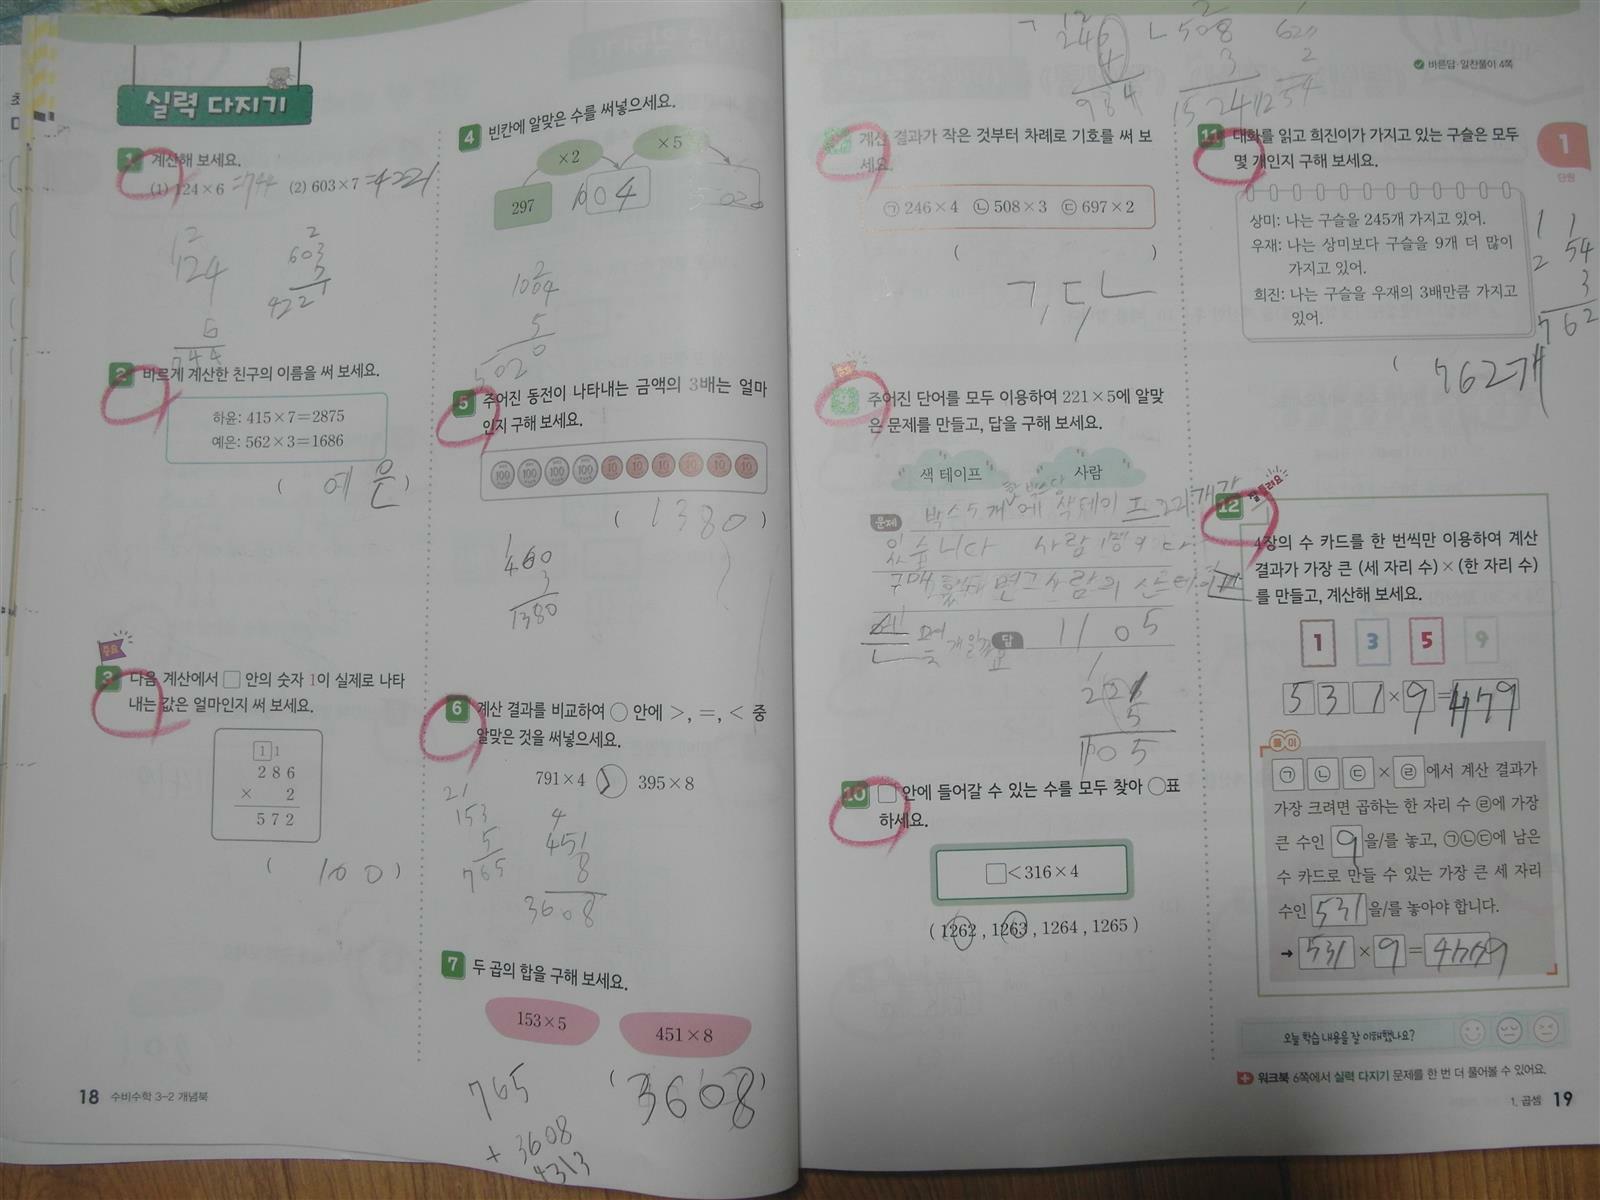 실력 다지기
1 계산해 보세요.
(1) 124×6 =744 (2) 603×7 =4221
124
6
744
2
603
7
4221
2 바르게 계산한 친구의 이름을 써 보세요.
하윤: 415×7=2875
예은: 562×3=1686
( 예은 )
중요
3 다음 계산에서 □ 안의 숫자 1이 실제로 나타
내는 값은 얼마인지 써 보세요.
1 1
2 8 6
× 2
5 7 2
( 100 )
18 수비수학 3-2 개념북
4 빈칸에 알맞은 수를 써넣으세요.
×2 ×5
297 604
5
5 주어진 동전이 나타내는 금액의 3배는 얼마
인지 구해 보세요.
100 100 100 100 10 10 10 10 10 10
( 1380 )
1
460
3
1380
6 계산 결과를 비교하여 ○ 안에 >, =, < 중
알맞은 것을 써넣으세요.
791×4 > 395×8
21
153
5
765
4
451
8
3608
7 두 곱의 합을 구해 보세요.
153×5 451×8
( 3608 )
765
+ 3608
4313
ㄱ 246
4
984
ㄴ 508
3
1524
2
바른답·알찬풀이 4쪽
계산 결과가 작은 것부터 차례로 기호를 써 보
세요.
㉠ 246×4 ㉡ 508×3 ㉢ 697×2
( )
ㄱ, ㄷ, ㄴ
9 주어진 단어를 모두 이용하여 221×5에 알맞
은 문제를 만들고, 답을 구해 보세요.
색 테이프 사람
문제 박스 5개에 색테이프 221개가
있습니다 사람
답 1105
1
221
5
1105
10 □ 안에 들어갈 수 있는 수를 모두 찾아 ○표
하세요.
□<316×4
( 1262 , 1263 , 1264 , 1265 )
11 대화를 읽고 희진이가 가지고 있는 구슬은 모두
몇 개인지 구해 보세요.
상미: 나는 구슬을 245개 가지고 있어.
우재: 나는 상미보다 구슬을 9개 더 많이
가지고 있어.
희진: 나는 구슬을 우재의 3배만큼 가지고
있어.
1 1
254
3
762
( 762개
1
단원
12 4장의 수 카드를 한 번씩만 이용하여 계산
결과가 가장 큰 (세 자리 수)×(한 자리 수)
를 만들고, 계산해 보세요.
1 3 5 9
5 3 1 × 9 =
풀이
㉠ ㉡ ㉢ × ㉣ 에서 계산 결과가
가장 크려면 곱하는 한 자리 수 ㉣에 가장
큰 수인 9 을/를 놓고, ㉠㉡㉢에 남은
수 카드로 만들 수 있는 가장 큰 세 자리
수인 531 을/를 놓아야 합니다.
→ 531 × 9 =
오늘 학습 내용을 잘 이해했나요?
워크북 6쪽에서 실력 다지기 문제를 한 번 더 풀어볼 수 있어요.
1. 곱셈 19